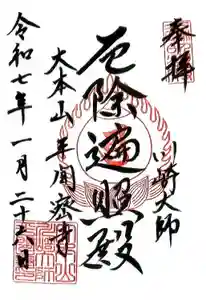 奉拝
川崎大師
厄除遍照殿
大本山平間密寺
令和七年一月二十六日